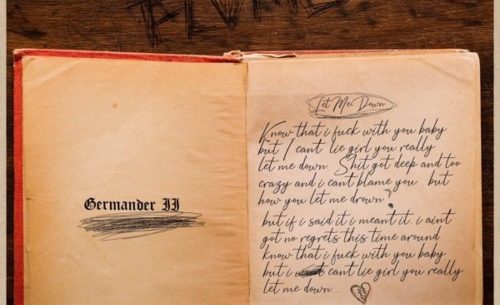 Germander II
Let Me Down
Know that i fuck with you baby
but I cant lie girl you really
let me down. Shit got deep and too
crazy and i cant blame you. but
how you let me drown?
but if i said it i meant it i aint
got no regrets this time around
know that i fuck with you baby
but i cant lie girl you really
let me down...